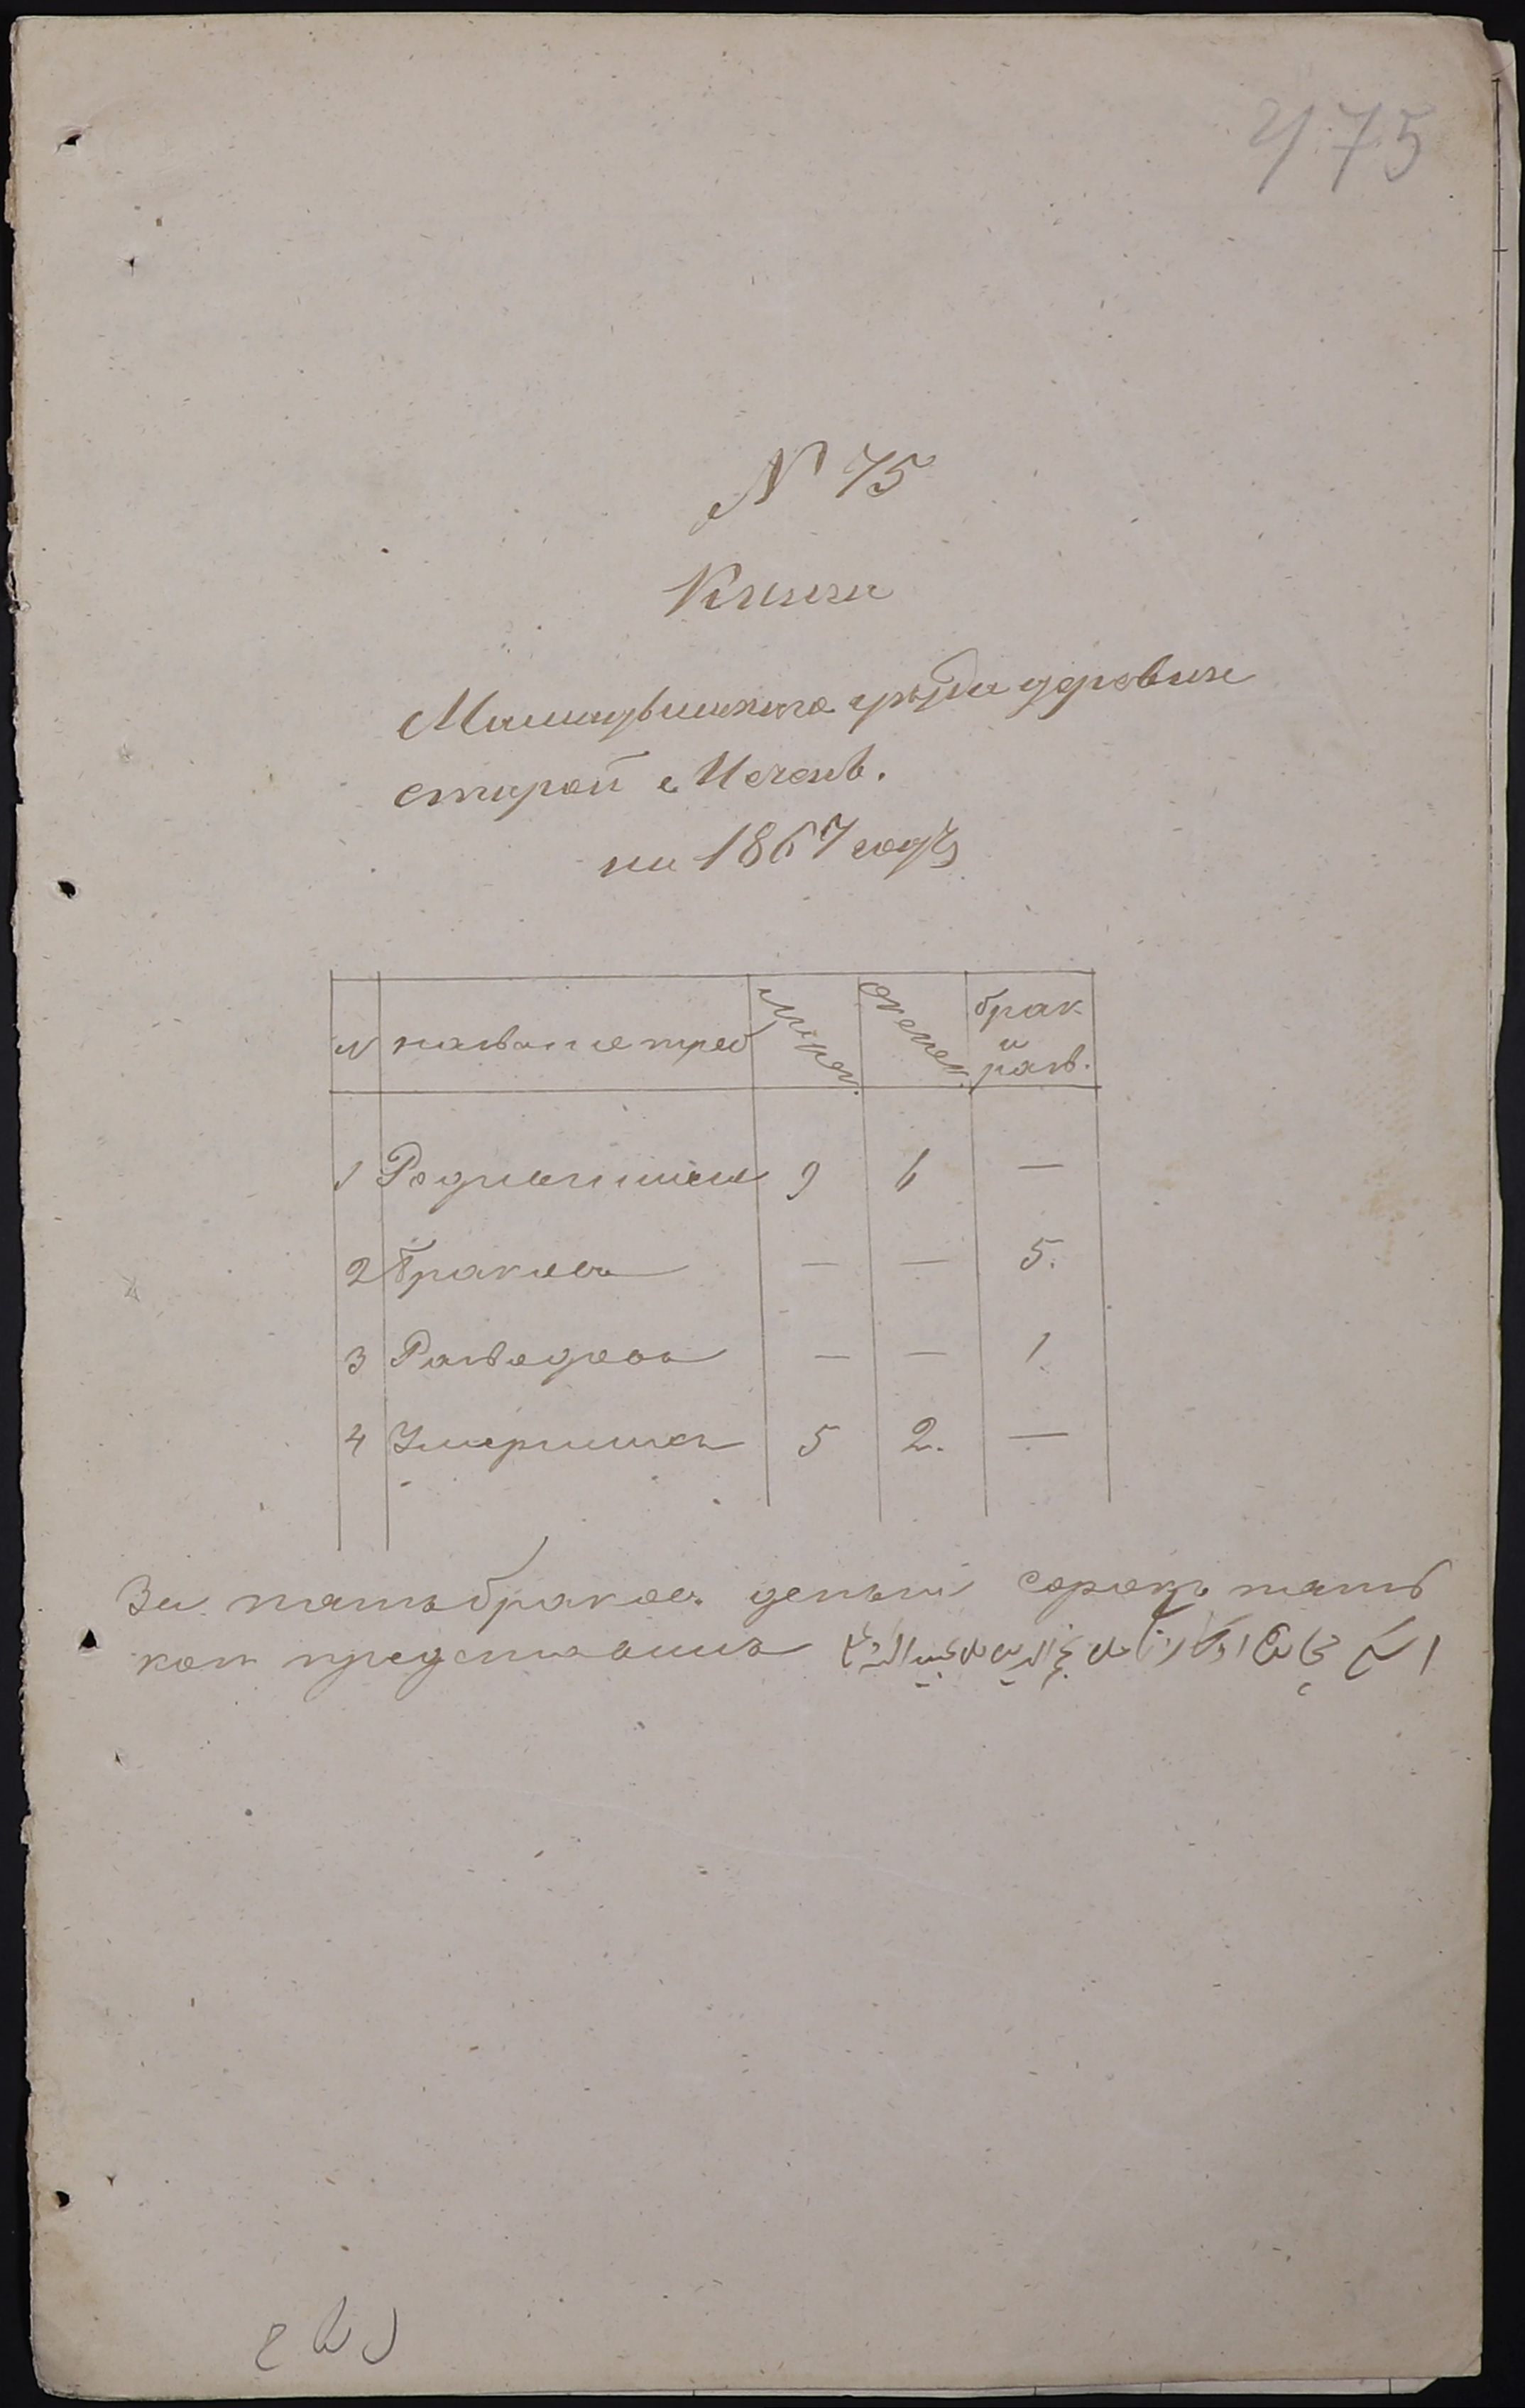 475
№ 75
Книга
Мамадышскаго уѣзда деревни
старой Мечеть.
на 1867 годъ
№ названіе треб мужск. женск. брак и разв.
1 Родившихся 9 6 —
2 Браковъ — — 5.
3 Разводовъ — — 1
4 Умершихъ 5 2. —
За пять браковъ деньги сорокъ пять
коп представилъ